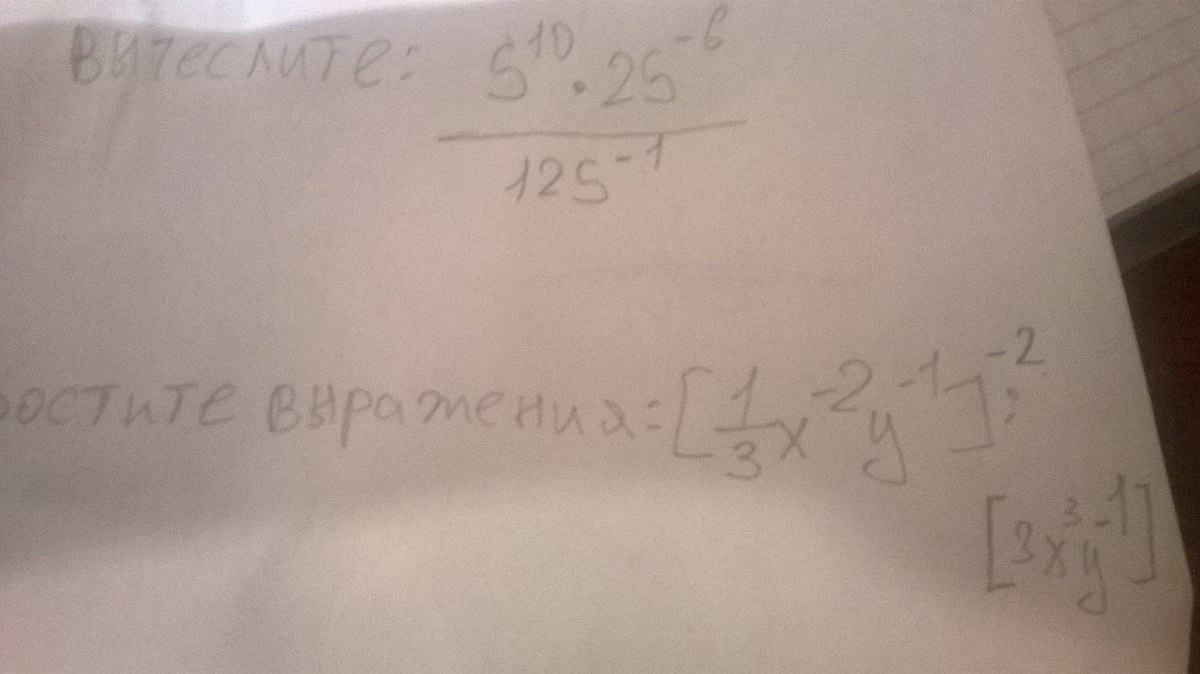 Вычеслите: 5^10 · 25^-6 / 125^-1
остите выражения: [1/3 x^-2 y^-1]^-2 :
[3x^3 y^-1]